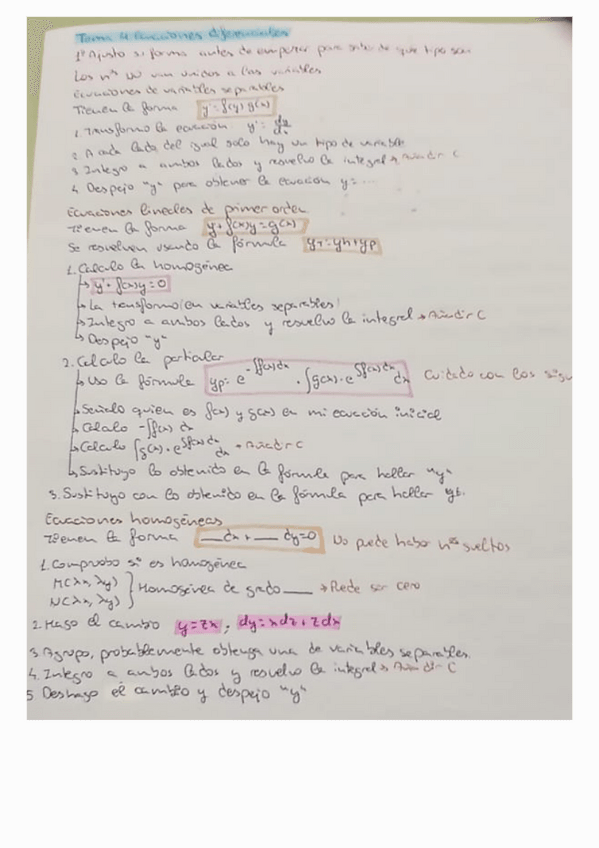 Tema 4 Ecuaciones diferenciales
1º Ajusto si forma antes de empezar para saber de que tipo son
Los nºs van unidos a las variables
Ecuaciones de variables separables
Tienen la forma y'=f(y)g(x)
1. Transformo la ecuación y'=
2. A cada lado del igual solo hay un tipo de variable
3. Integro a ambos lados y resuelvo la integral → Añadir C
4. Despejo "y" para obtener la ecuación y=...
Ecuaciones lineales de primer orden
Tienen la forma y'+f(x)y=g(x)
Se resuelven usando la fórmula yT=yh+yp
1. Calculo la homogénea
→ y'+f(x)y=0
→ La transformo (en variables separables)
→ Integro a ambos lados y resuelvo la integral → Añadir C
→ Despejo "y"
2. Calculo la particular
→ Uso la fórmula yp= e^-∫f(x)dx · ∫g(x)·e^∫f(x)dx dx Cuidado con los sign
→ Señalo quien es f(x) y g(x) en mi ecuación inicial
→ Calculo -∫f(x) dx
→ Calculo ∫g(x)·e^∫f(x)dx dx → Añadir C
→ Sustituyo lo obtenido en la fórmula para hallar "y"
3. Sustituyo con lo obtenido en la fórmula para hallar yt.
Ecuaciones homogéneas
Tienen la forma __dx + __dy=0 No puede haber nºs sueltos
1. Comprobo si es homogénea
M(λx, λy)
N(λx, λy) } Homogénea de grado ___ → Puede ser cero
2. Hago el cambio y=zx ; dy=xdz+zdx
3. Agrupo, probablemente obtenga una de variables separables.
4. Integro a ambos lados y resuelvo la integral → Añadir C
5. Deshago el cambio y despejo "y"